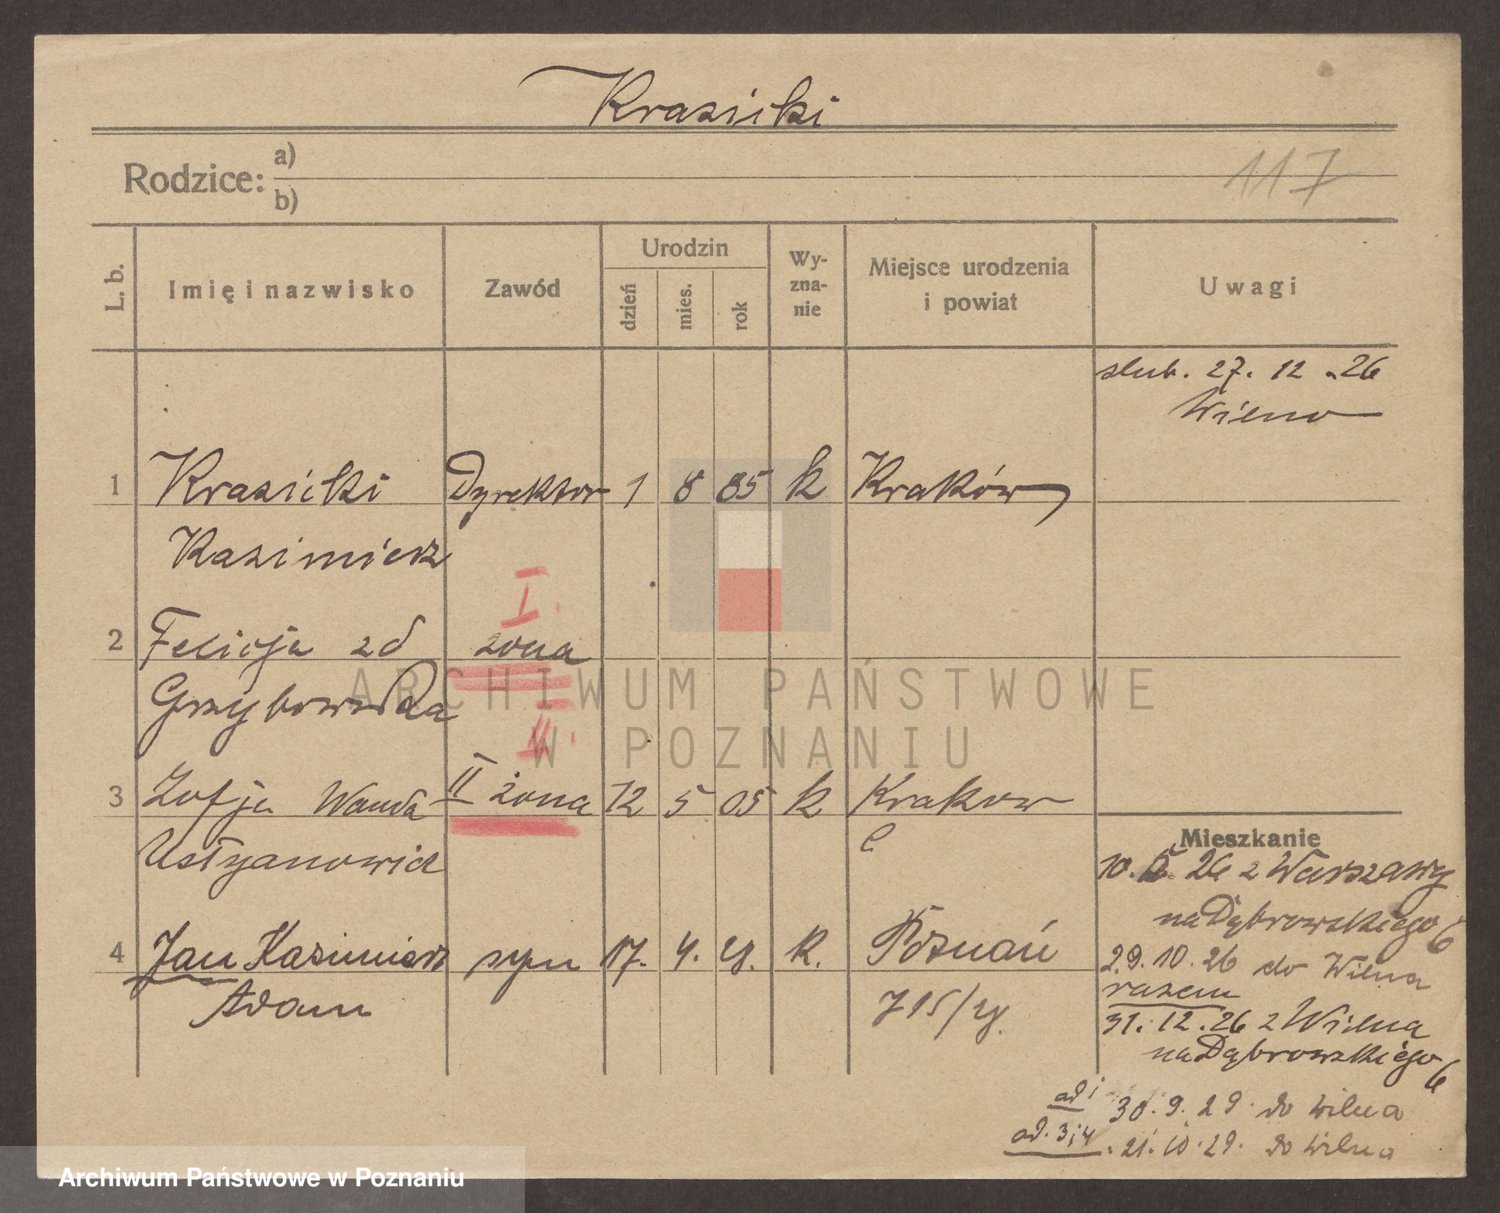 Krasicki
Rodzice: a)
b)
117
L. b.
Imię i nazwisko
Zawód
Urodzin
dzień
mies.
rok
Wy-
zna-
nie
Miejsce urodzenia
i powiat
Uwagi
slub. 27. 12. 26
Wilno
1 Krasicki Dyrektor 1 8 85 k Kraków
Kazimierz
I.
2 Felicja zd zona
Grzybowska
II.
3 Zofja Wanda II żona 12 5 05 k Krakow
Ustyanowicz
Mieszkanie
10. 26 z Warszawy
na Dąbrowskiego 6
4 Jan Kazimierz syn 17. 4. 29. k. Poznań
Adam
715/29.
29. 10. 26 do Wilna
razem
31. 12. 26 z Wilna
na Dąbrowskiego 6
ad 1 30. 9. 29. do Wilna
ad. 3i4. 21. 10. 29. do Wilna
ARCHIWUM PAŃSTWOWE
W POZNANIU
Archiwum Państwowe w Poznaniu